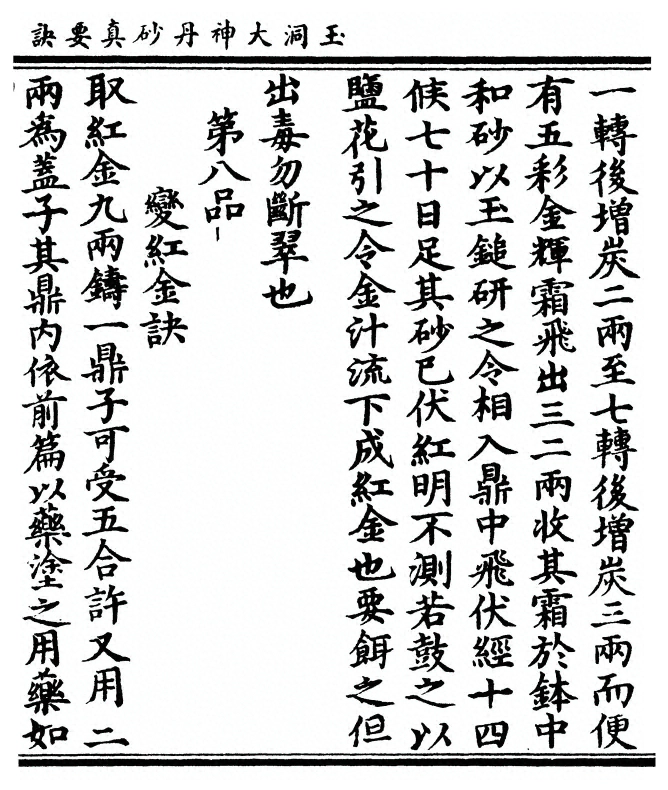 玉洞大神丹砂真要訣
一轉後增炭二兩至七轉後增炭三兩而便
有五彩金輝霜飛出三二兩收其霜於鉢中
和砂以玉鎚研之令相入鼎中飛伏經十四
候七十日足其砂已伏紅明不測若鼓之以
鹽花引之令金汁流下成紅金也要餌之但
出毒勿斷翠也
第八品
變紅金訣
取紅金九兩鑄一鼎子可受五合許又用二
兩為蓋子其鼎內依前篇以藥塗之用藥如